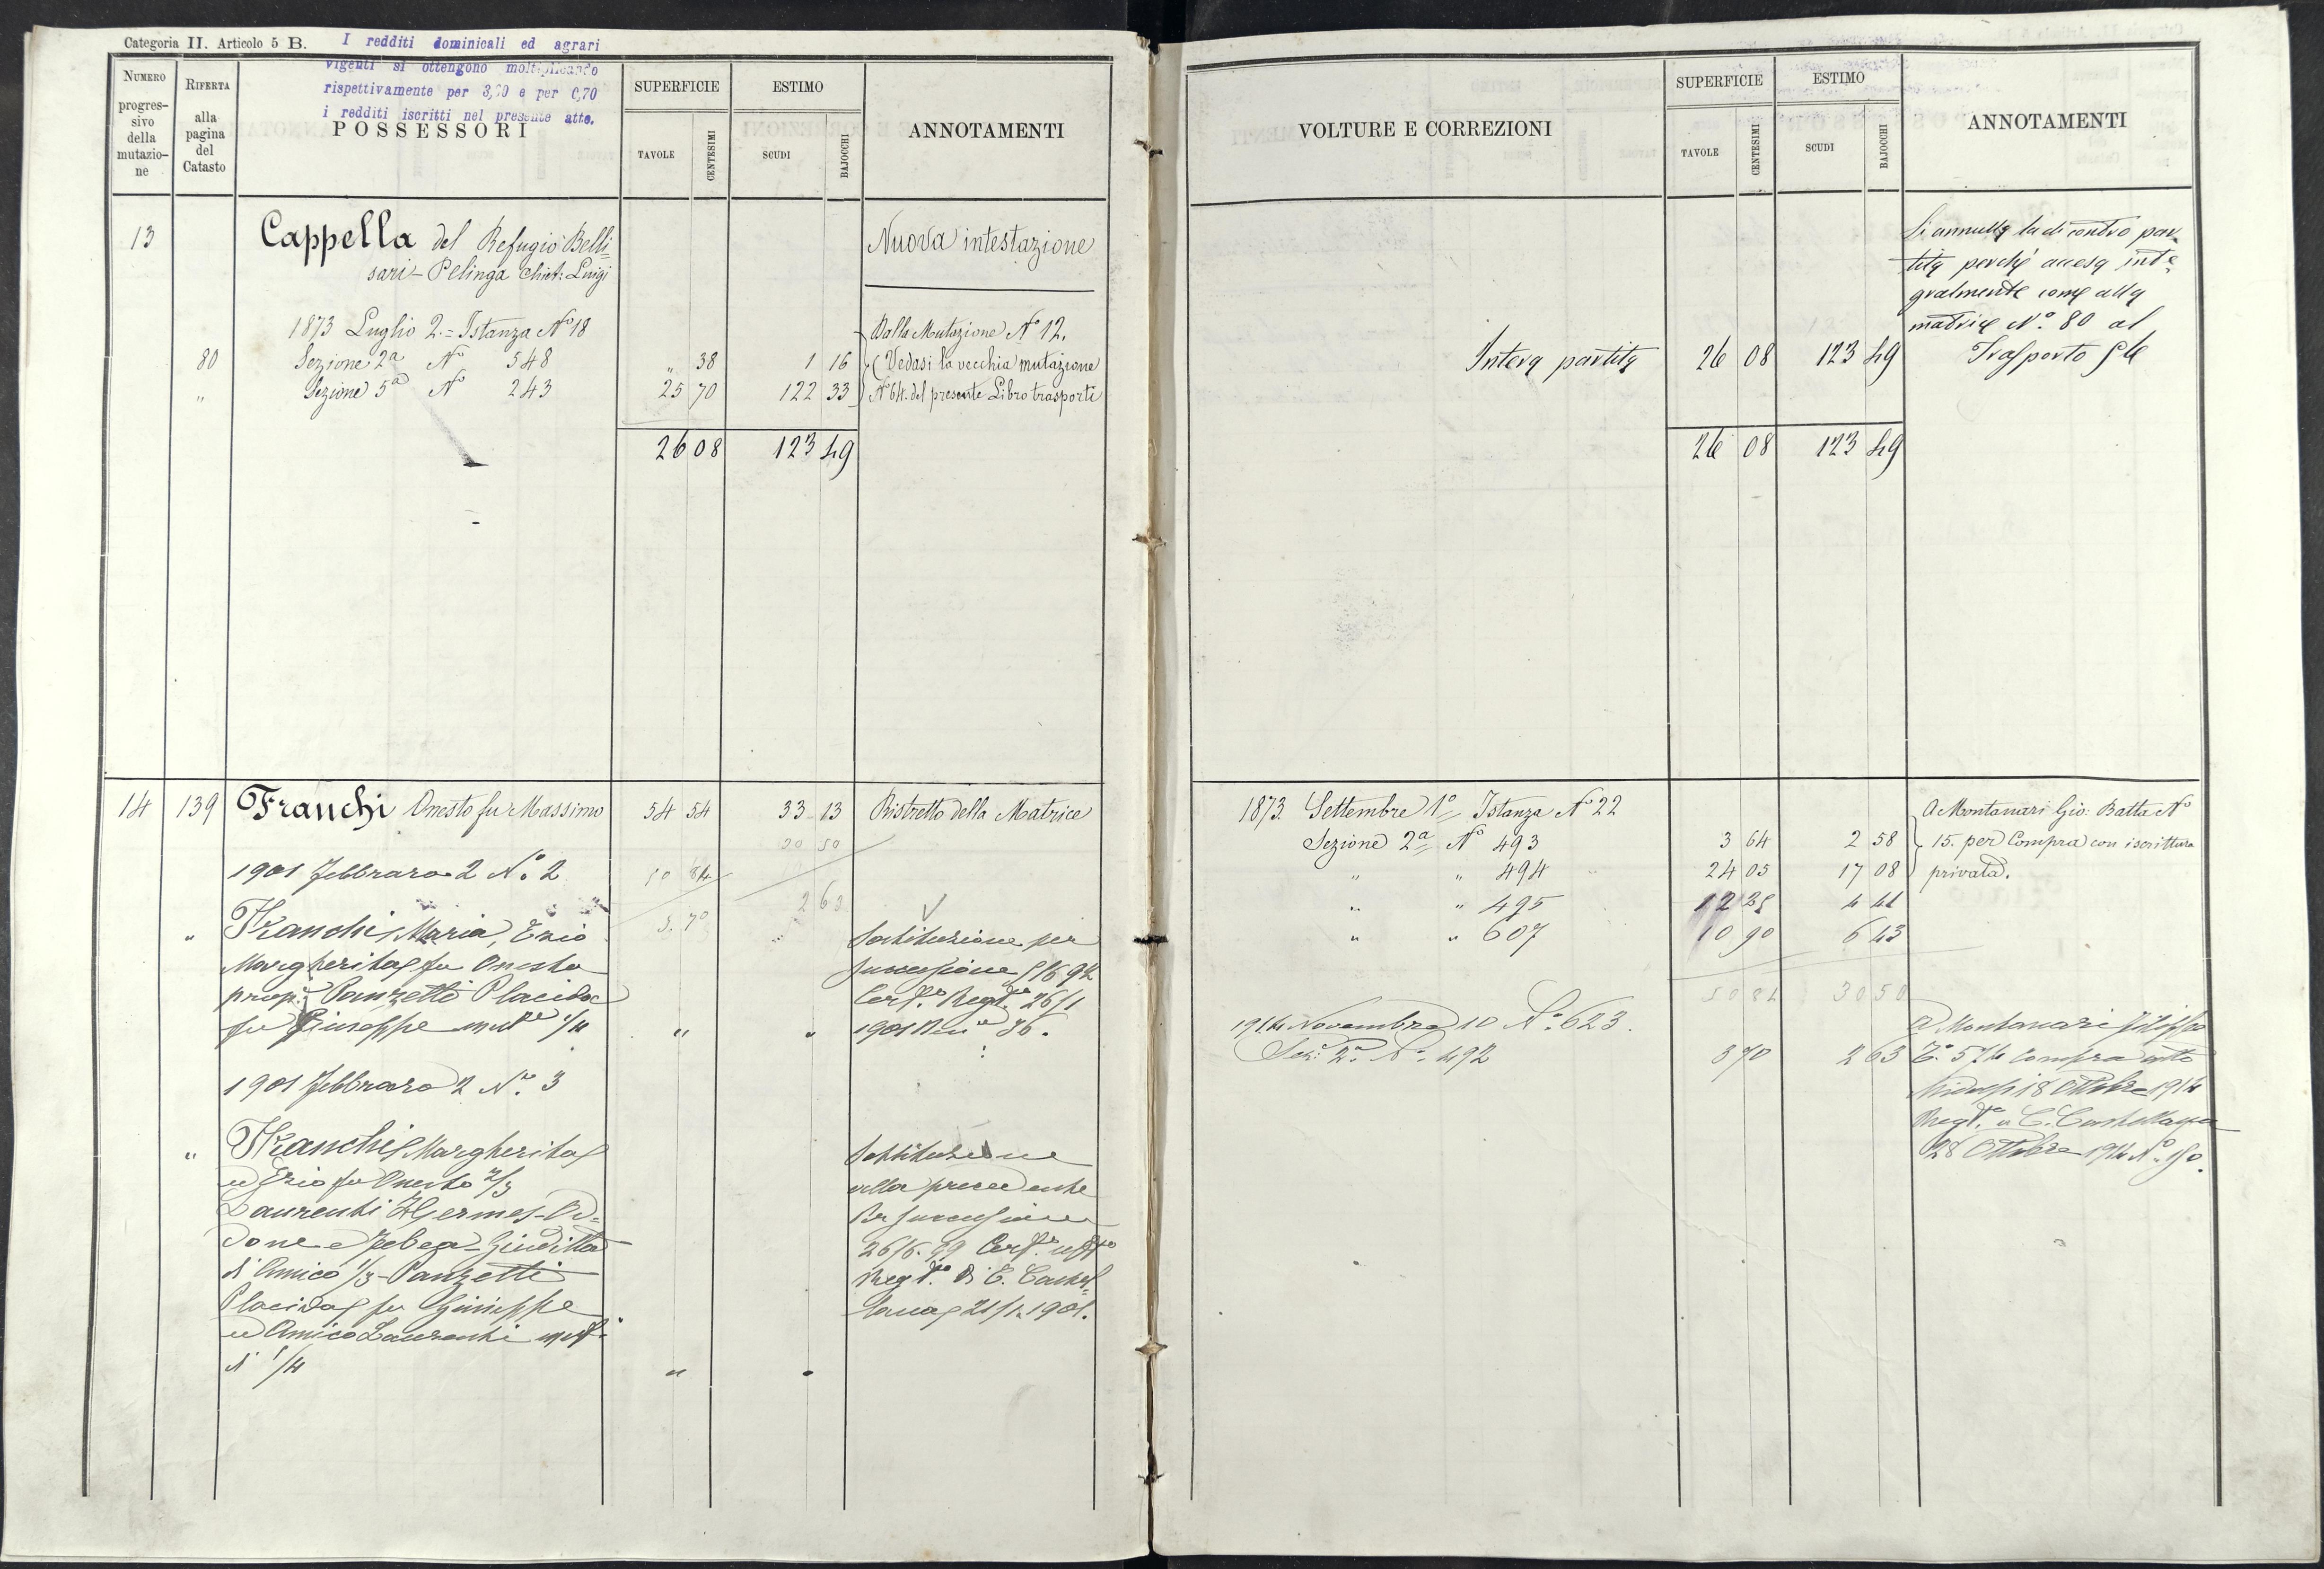 Categoria II. Articolo 5 B.
I redditi dominicali ed agrari
vigenti si ottengono moltiplicando
rispettivamente per 3,20 e per 0,70
i redditi iscritti nel presente atto.
NUMERO progres-sivo della mutazio-ne
RIFERTA alla pagina del Catasto
POSSESSORI
SUPERFICIE
TAVOLE CENTESIMI
ESTIMO
SCUDI BAJOCCHI
ANNOTAMENTI
13 Cappella del Refugio Belli=
sari - Pelinga Chist: Luigi
Nuova intestazione
1873 Luglio 2.= Istanza No 18
Dalla Mutazione No 12.
80 Sezione 2a No 548 " 38 1 16 (Vedasi la vecchia mutazione
" Sezione 5a No 243 25 70 122 33 No 64. del presente Libro trasporti
26 08 123 49
14 139 Franchi Onesto fu Massimo 54 54 33 13 Ristretto della Matrice
30 50
1901 Febbraro 2 No. 2 50 84
2 63
" Franchi Maria, Ezio 3. 70
Margherita fu Onesto
prop. Panzetti Placida
fu Giuseppe 1/4 " "
Sostituzione per
successione
Cert.o Reg.to 26/1
1901 36.
1901 Febbraro 2 No. 3
" Franchi Margherita
ed Ezio fu Onesto 2/3
Laurenti Hermes-Od=
done e Giuditta
d'Amico 1/3 - Panzetti
Placida fu Giuseppe
ed Amico Laurenti
di 1/4 " "
Sostituzione
alla precedente
Per successione
26/6.99 Cert.
Reg.to di C. Castel=
21/1 1901.
VOLTURE E CORREZIONI
SUPERFICIE
TAVOLE CENTESIMI
ESTIMO
SCUDI BAJOCCHI
ANNOTAMENTI
Si annulla la di contro par
tita perchè accesa inte
gralmente come alla
matrice No. 80 al
Intera partita 26 08 123 49 Trasporto
26 08 123 49
1873 Settembre 1o Istanza No 22
Sezione 2a No 493 3 64 2 58
" " 494 24 05 17 08
" " 495 12 25 4 41
" " 607 10 90 6 43
50 84 30 50
A Montanari Gio: Batta No
15. per Compra con iscrittura
privata.
1914 Novembre 10 No. 623.
Sez. 2a No. 492 3 70 2 63
A Montanari Filippo
compra atto
18 Ottobre 1914
Reg.to a C.
28 Ottobre 1914 No.